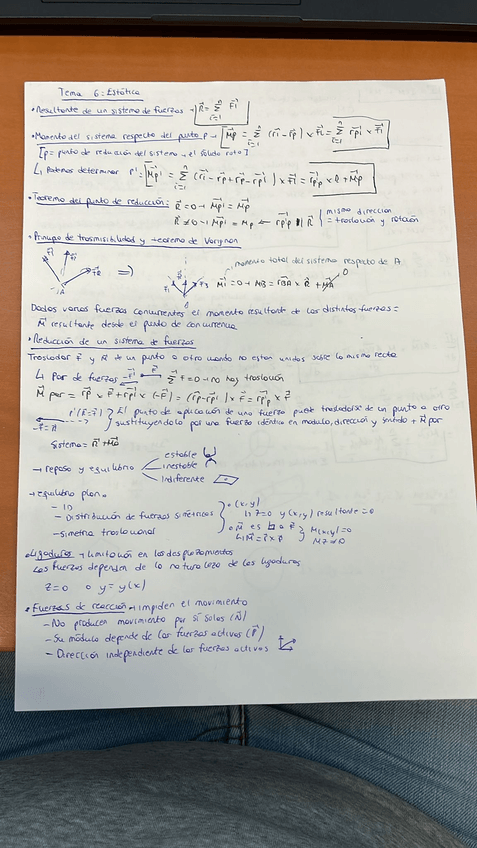 Tema 6: Estática
• Resultante de un sistema de fuerzas → R⃗ = Σ(i=1, n) F⃗i
• Momento del sistema respecto del punto P → M⃗p = Σ(i=1, n) (r⃗i - r⃗p) x F⃗i = Σ(i=1, n) r⃗pi x F⃗i
[P = punto de reducción del sistema → el sólido rota]
↳ Podemos determinar P' = M⃗p' = Σ(i=1, n) (r⃗i - r⃗p + r⃗p - r⃗p') x F⃗i = r⃗p'p x R + M⃗p
• Teorema del punto de reducción: R⃗ = 0 → M⃗p' = M⃗p
R⃗ ≠ 0 → M⃗p' = Mp ← r⃗p'p || R⃗ | misma dirección
= traslación y rotación
• Principio de trasmisibilidad y teorema de Varignon
momento total del sistema respecto de A
⇒) M⃗i = 0 → MB = r⃗BA x R⃗ + M⃗A 0
Dadas varias fuerzas concurrentes el momento resultante de las distintas fuerzas =
M⃗ resultante desde el punto de concurrencia
• Reducción de un sistema de fuerzas
Trasladar F⃗ y R⃗ de un punto a otro cuando no están unidos sobre la misma recta
↳ Par de fuerzas -F⃗ F⃗ Σ F⃗ = 0 → no hay traslación
M⃗ par = r⃗p x F⃗ + r⃗p' x (-F⃗) = (r⃗p - r⃗p') x F⃗ = r⃗p'p x F⃗
El punto de aplicación de una fuerza puede trasladarse de un punto a otro
sustituyéndolo por una fuerza idéntica en módulo, dirección y sentido + M⃗ par
Sistema = R⃗ + M⃗o
→ reposo y equilibrio
estable
inestable
indiferente
→ equilibrio plano
- 1D
- Distribución de fuerzas simétricas
- Simetría traslacional
• (x,y)
↳ Z=0 y (x,y) resultante = 0
• M⃗ es ⊥ a F⃗
↳ M⃗ = r⃗ x F⃗
M(x,y) = 0
MZ ≠ 0
• Ligaduras → limitación en los desplazamientos
Las fuerzas dependen de la naturaleza de las ligaduras
Z=0 o y = y(x)
• Fuerzas de reacción → impiden el movimiento
- No producen movimiento por sí solas (N⃗)
- Su módulo depende de las fuerzas activas (P⃗)
- Dirección independiente de las fuerzas activas